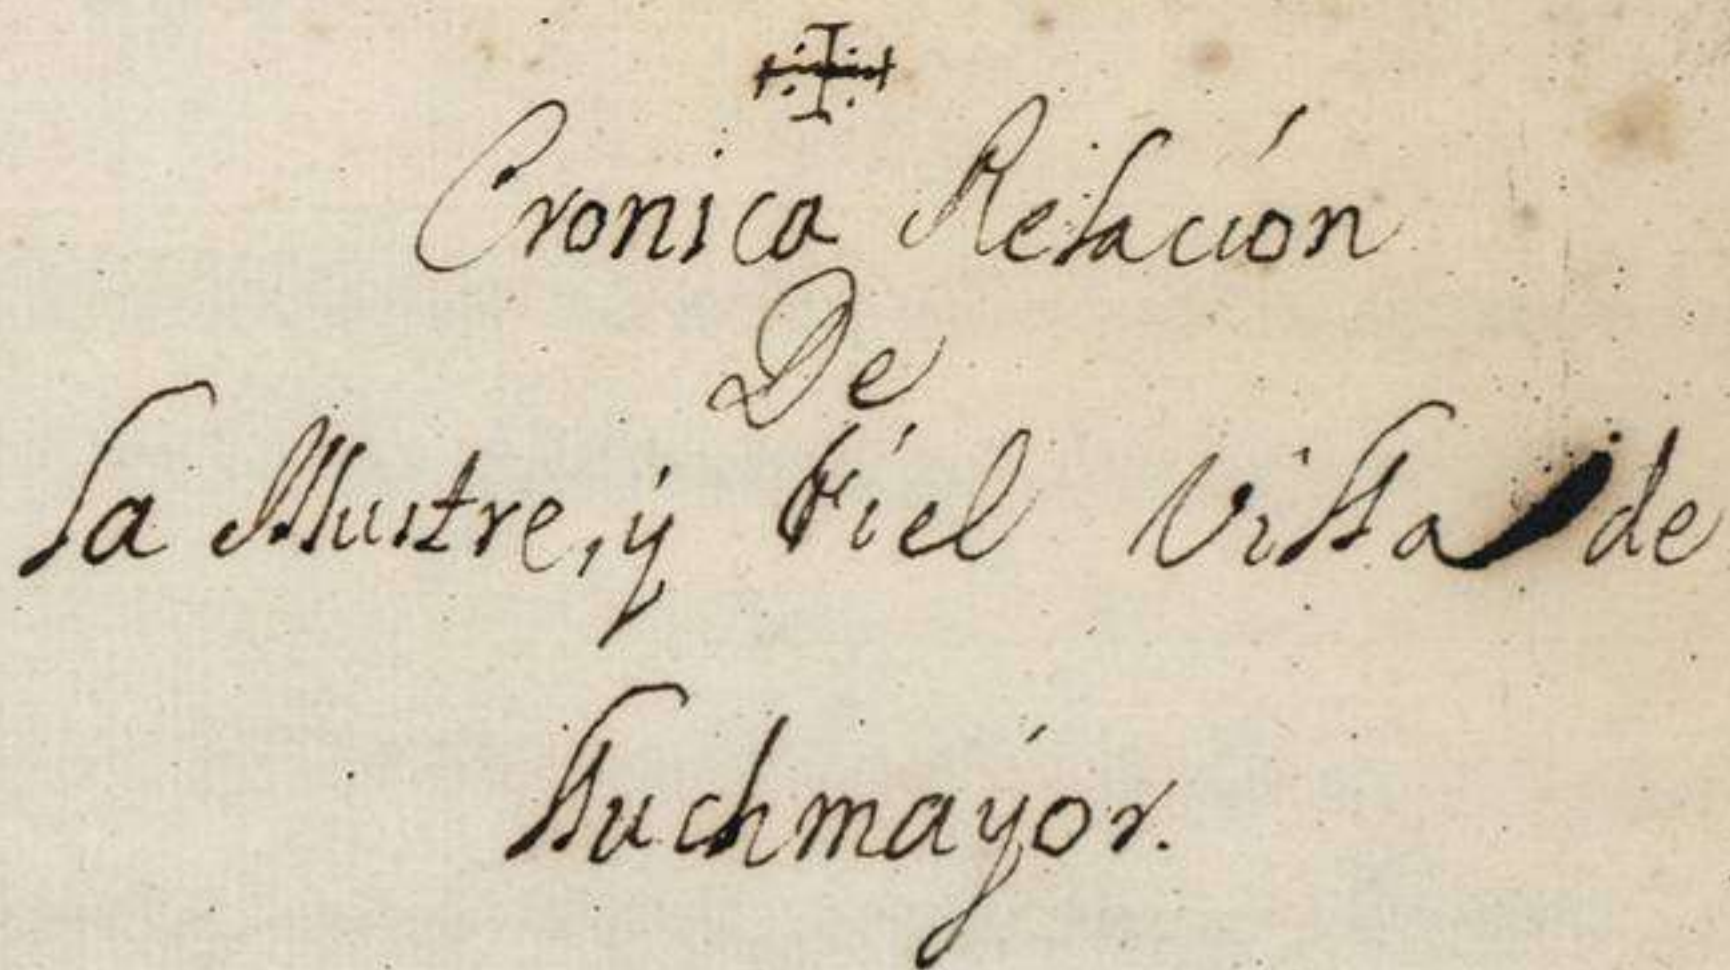 Cronica Relación
De
la Illustre, ý Fiel Villa de
Lluchmaýor.